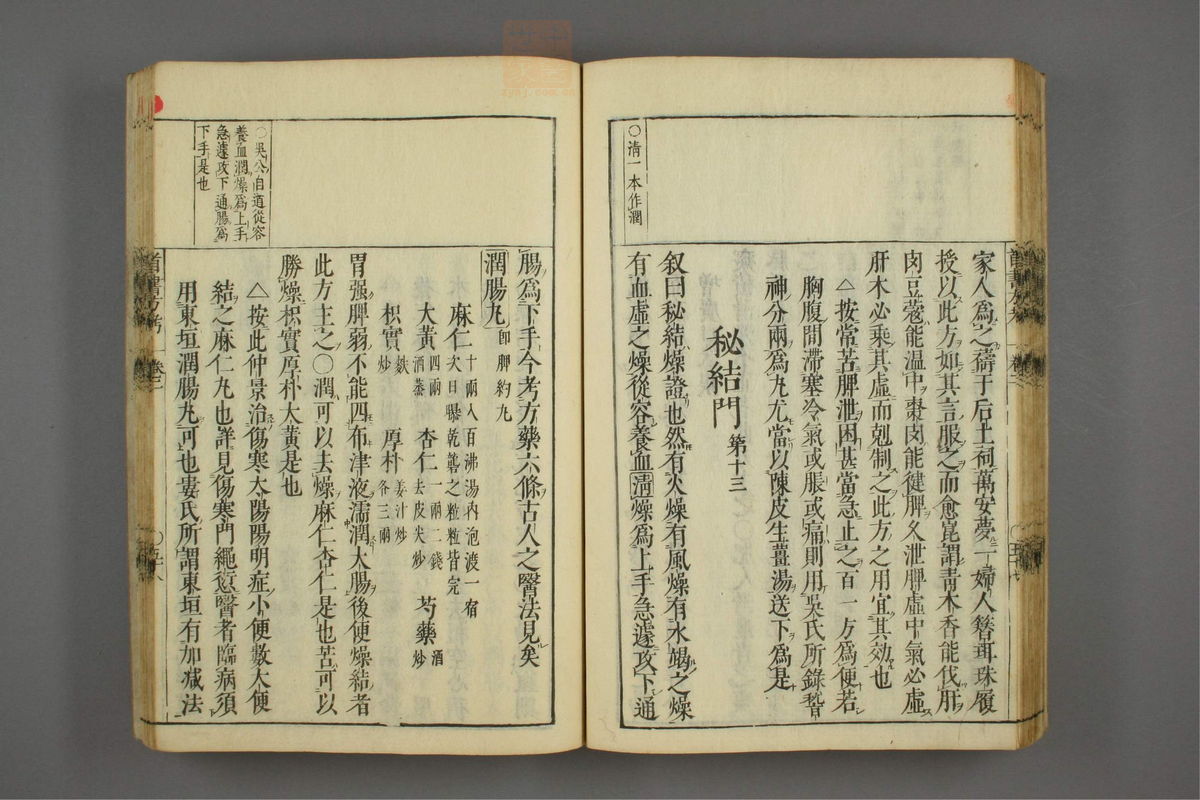 〇清一本作潤
家人為之禱于后土祠萬安夢一婦人簪珥珠履
授以此方如其言服之而愈崑謂青木香能伐肝
肉豆蔻能温中棗肉能健脾久泄脾虛中氣必虛
肝木必乘其虛而剋制之此方之用宜其効也
△按常苦脾泄困甚當急止之百一方為便若
胸腹間滯塞冷氣或脹或痛則用吳氏所錄
神分兩為丸尤當以陳皮生薑湯送下為是
秘結門 第十三
叙曰秘結燥證也然有火燥有風燥有水竭之燥
有血虛之燥從容養血清燥為上手急遽攻下通
〇吳公自道從容
養血潤燥為上手
急遽攻下通腸為
下手是也
腸為下手今考方藥六條古人之醫法見矣
潤腸丸 即脾約丸
麻仁 十兩入百沸湯內泡渡一宿
次日曝乾礱之粒粒皆完
大黃 四兩
酒蒸
杏仁 一兩二錢
去皮尖炒
芍藥 酒
炒
枳實 麩
炒
厚朴 姜汁炒
各三兩
胃强脾弱不能四布津液濡潤大腸後便燥結者
此方主之〇潤可以去燥麻仁杏仁是也苦可以
勝燥枳實厚朴大黃是也
△按此仲景治傷寒太陽陽明症小便數大便
結之麻仁丸也詳見傷寒門繩愆醫者臨病須
用東垣潤腸丸可也婁氏所謂東垣有加减法